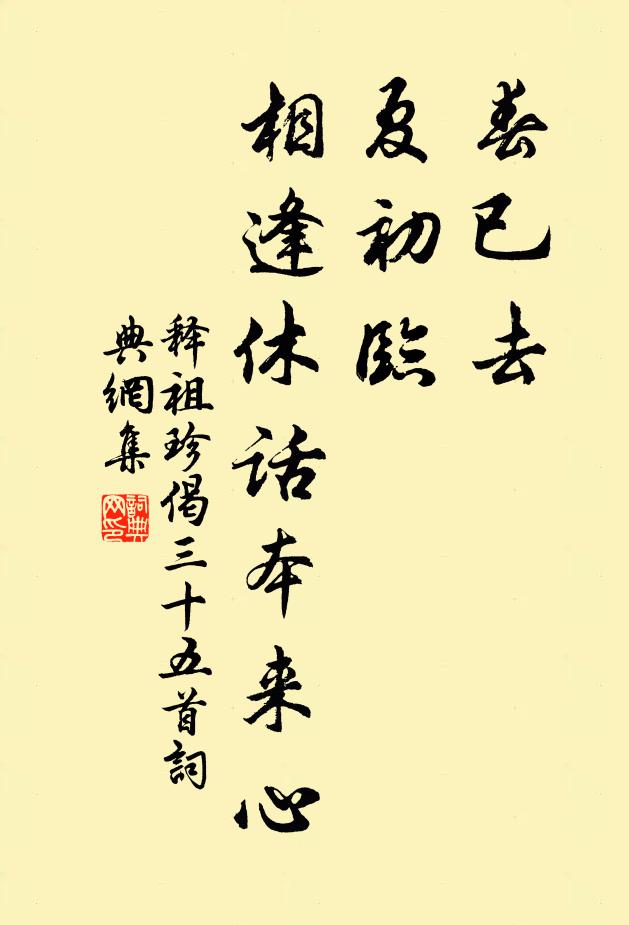 春已去
夏初臨
相逢休話本来心
释祖珍偈三十五首詞
典網集
詞典網印